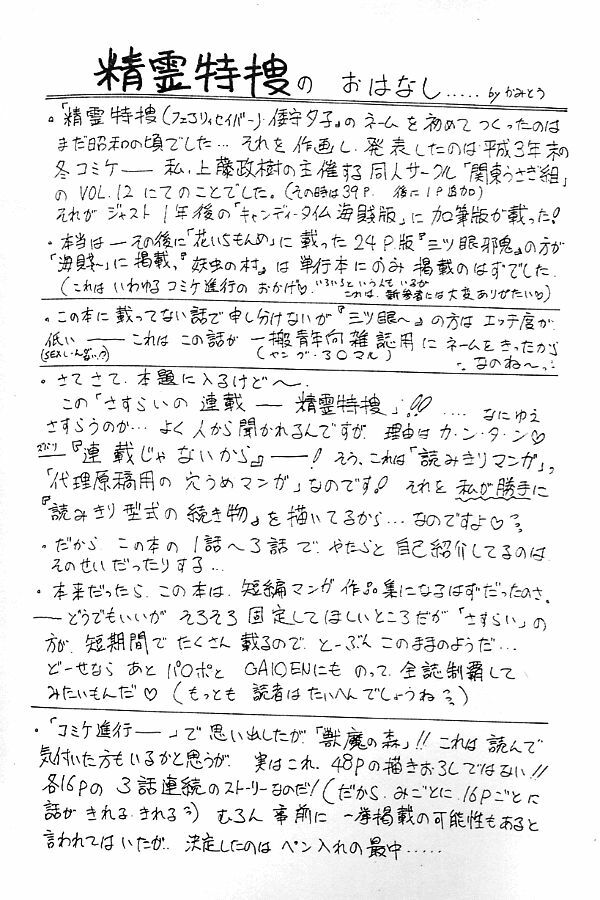 精霊特捜の おはなし..... byかみとう
。「精霊特捜(フェアリィセイバー)・倭守夕子』のネームを初めてつくったのは
まだ昭和の頃でした… それを作画し、発表したのは平成3年末の
冬コミケ―― 私、上藤政樹の主催する同人サークル「関東うさぎ組」
のVOL.12にてのことでした。(その時は39P. 後に1P追加)
それがジャスト1年後の「キャンディ・タイム海賊版」に加筆版が載った!
・本当は―その後に「花いちもんめ」に載った24P版『三ツ眼邪鬼』の方が
「海賊〜」に掲載、『妖虫の村』は単行本にのみ掲載のはずでした。
(これはいわゆるコミケ進行のおかげ♡。いろいろという人もいるが
これは、新参者には大変ありがたい♡)
・この本に載ってない話で申し分けないが『三ツ眼〜』の方はエッチ度が
低い ―― これはこの話が一般青年向雑誌用にネームをきったから
(SEXしーんない?) (ヤング・30マル) なのね〜
・さてさて、本題に入るけど〜.
この「さすらいの連載 ― 精霊特捜」!! .... なにゆえ
さすらうのか… よく人から聞かれるんですが、理由はカ・ン・タ・ン♡
ズバリ『連載じゃないから』――! そう、これは「読みきりマンガ」、
「代理原稿用の穴うめマンガ」なのです! それを私が勝手に
『読みきり型式の続き物』を描いてるから… なのですよ♡
・だから、この本の1話〜3話で、やたらと自己紹介してるのは
そのせいだったりする…
・本来だったら、この本は、短編マンガ作品集になるはずだったのさ。
――どうでもいいがそろそろ固定してほしいところだが「さすらい」の
方が、短期間でたくさん載るので、とーぶんこのままのようだ…
どーせならあとパロポとGAIDENにものって、全誌制覇して
みたいもんだ♡(もっとも読者はたいへんでしょうね?)
・「コミケ進行――」で思い出したが、「獣魔の森」!! これは読んで
気付いた方もいるかと思うが、実はこれ、48Pの描きおろしではない!!
各16Pの3話連続のストーリーなのだ!(だから、みごとに、16Pごとに
話がきれる、きれる?) むろん事前に一挙掲載の可能性もあると
言われてはいたが、決定したのはペン入れの最中.....